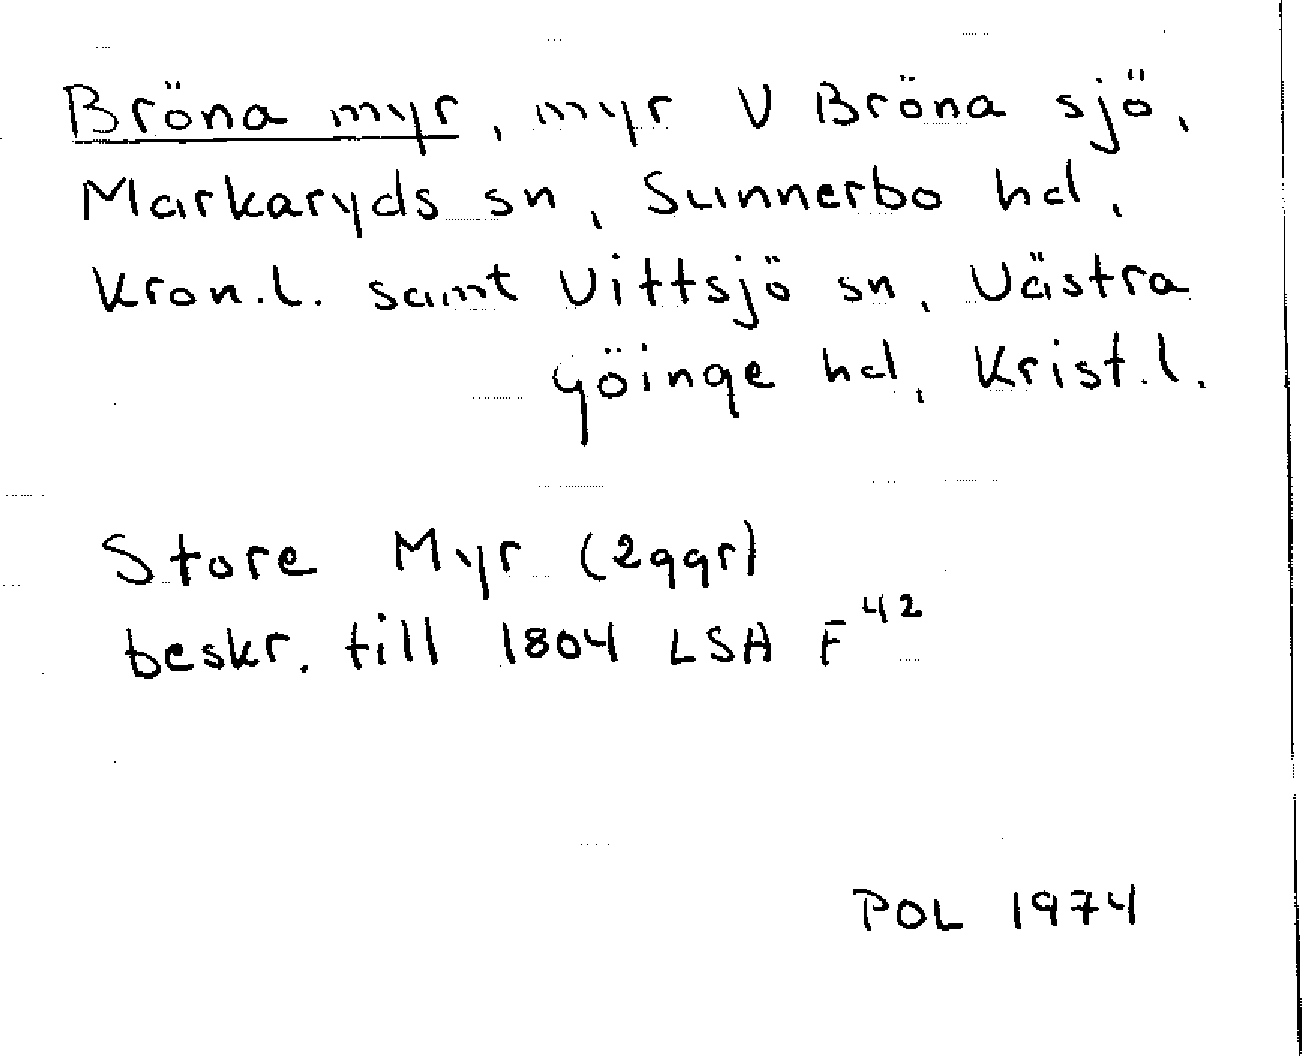 Bröna myr, myr V Bröna sjö,
Markaryds sn, Sunnerbo hd,
Kron.l. samt Vittsjö sn, Västra
Göinge hd, Krist.l.
Store Myr (2ggr)
beskr. till 1804 LSA F⁴²
POL 1974